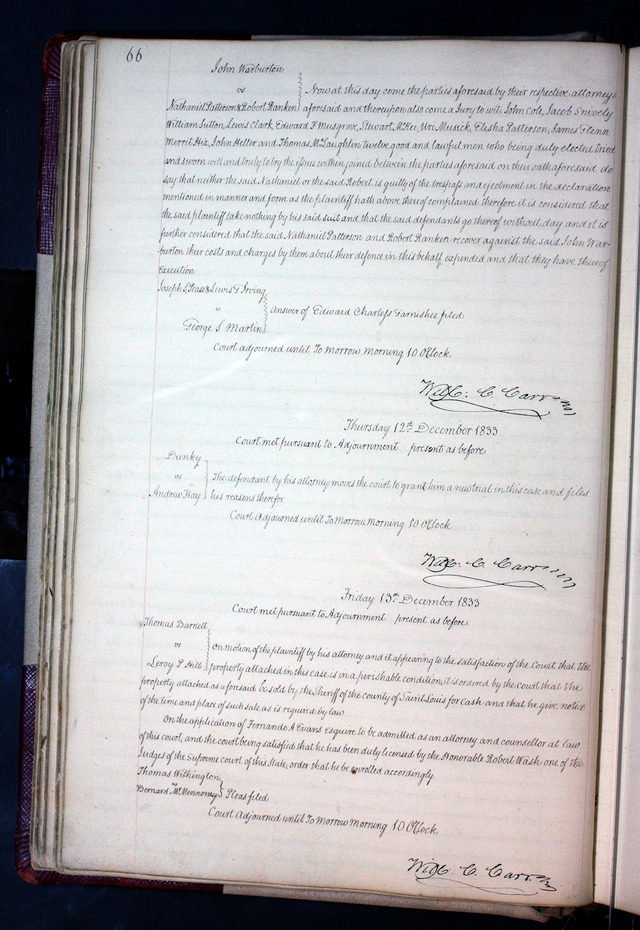 66
John Warburton
vs
Nathaniel Patterson & Robert Ranken
Now at this day come the parties aforesaid by their respective attorneys
aforesaid and thereupon also come a Jury to wit, John Cole, Jacob Snively
William Sutton Lewis Clark, Edward F. Musgrove, Stewart, McKee, Uri Musick, Elisha Patterson, James Glenn
Merrit Hix, John Heller and Thomas McLaughlin twelve good and lawful men who being duly elected tried
and sworn well and truly to try the issue within joined between the parties aforesaid on their oath aforesaid do
say that neither the said Nathaniel or the said Robert is guilty of the trespass and ejectment in the declaration
mentioned in manner and form as the plaintiff hath above thereof complained. Therefore it is considered that
the said plaintiff take nothing by his said suit and that the said defendants go thereof without day and it is
further considered that the said Nathaniel Patterson and Robert Ranken recover against the said John War-
burton their costs and charges by them about their defence in this behalf expended and that they have thereof
Execution
Joseph L Pease & Lewis T Irving
vs
George S Martin
Answer of Edward Charless Garnishee filed
Court adjourned until To Morrow Morning 10 O'Clock
Will: C. Carr
Thursday 12th December 1833
Court met pursuant to Adjournment present as before
Dunky
vs
Andrew Hay
The defendant by his attorney moves the court to grant him a new trial in this case and files
his reasons therefor
Court Adjourned until To Morrow Morning 10 O'Clock
Will: C. Carr
Friday 13th December 1833
Court met pursuant to Adjournment present as before
Thomas Darnett
vs
Leroy P Hill
On motion of the plaintiff by his attorney and it appearing to the satisfaction of the Court that the
property attached in this case is in a perishable condition, it is ordered by the court that the
property attached as aforesaid be sold by the Sheriff of the county of Saint Louis for Cash and that he give notice
of the time and place of such sale as is required by law
On the application of Fernando A Evans esquire to be admitted as an attorney and counsellor at law
of this court, and the court being satisfied that he has been duly licensed by the Honorable Robert Wash one of the
Judges of the Supreme court of this State, order that he be enrolled accordingly
Thomas Withington
Bernard McMennomy
Pleas filed
Court Adjourned until To Morrow Morning 10 O'Clock
Will: C. Carr